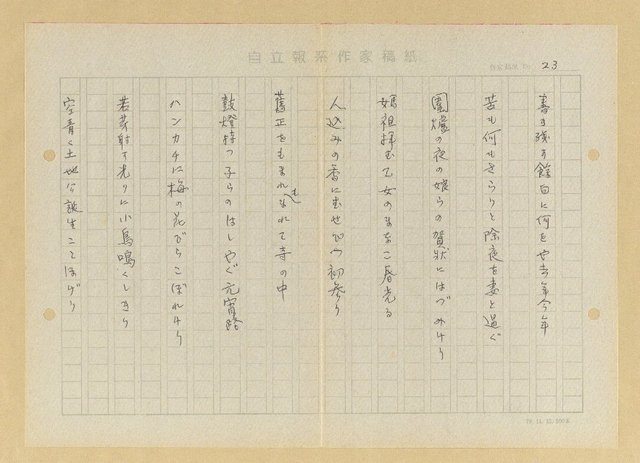 自立報系作家稿紙
23
書き残す餘白に何をや去年今年
苦も何もさらりと除夜を妻と過ぐ
圍爐の夜の娘らの賀狀にはづみけり
媽祖拝む乙女のまなこ昏光る
人込みの香にむせびつつ初參り
舊正をもまれもまれて寺の中
鼓燈持つ子らのはしやぐ元宵路
ハンカチに梅の花びらこぼれけり
若芽射す光りに小鳥鳴くしきり
空青く土地公誕生ことほげり